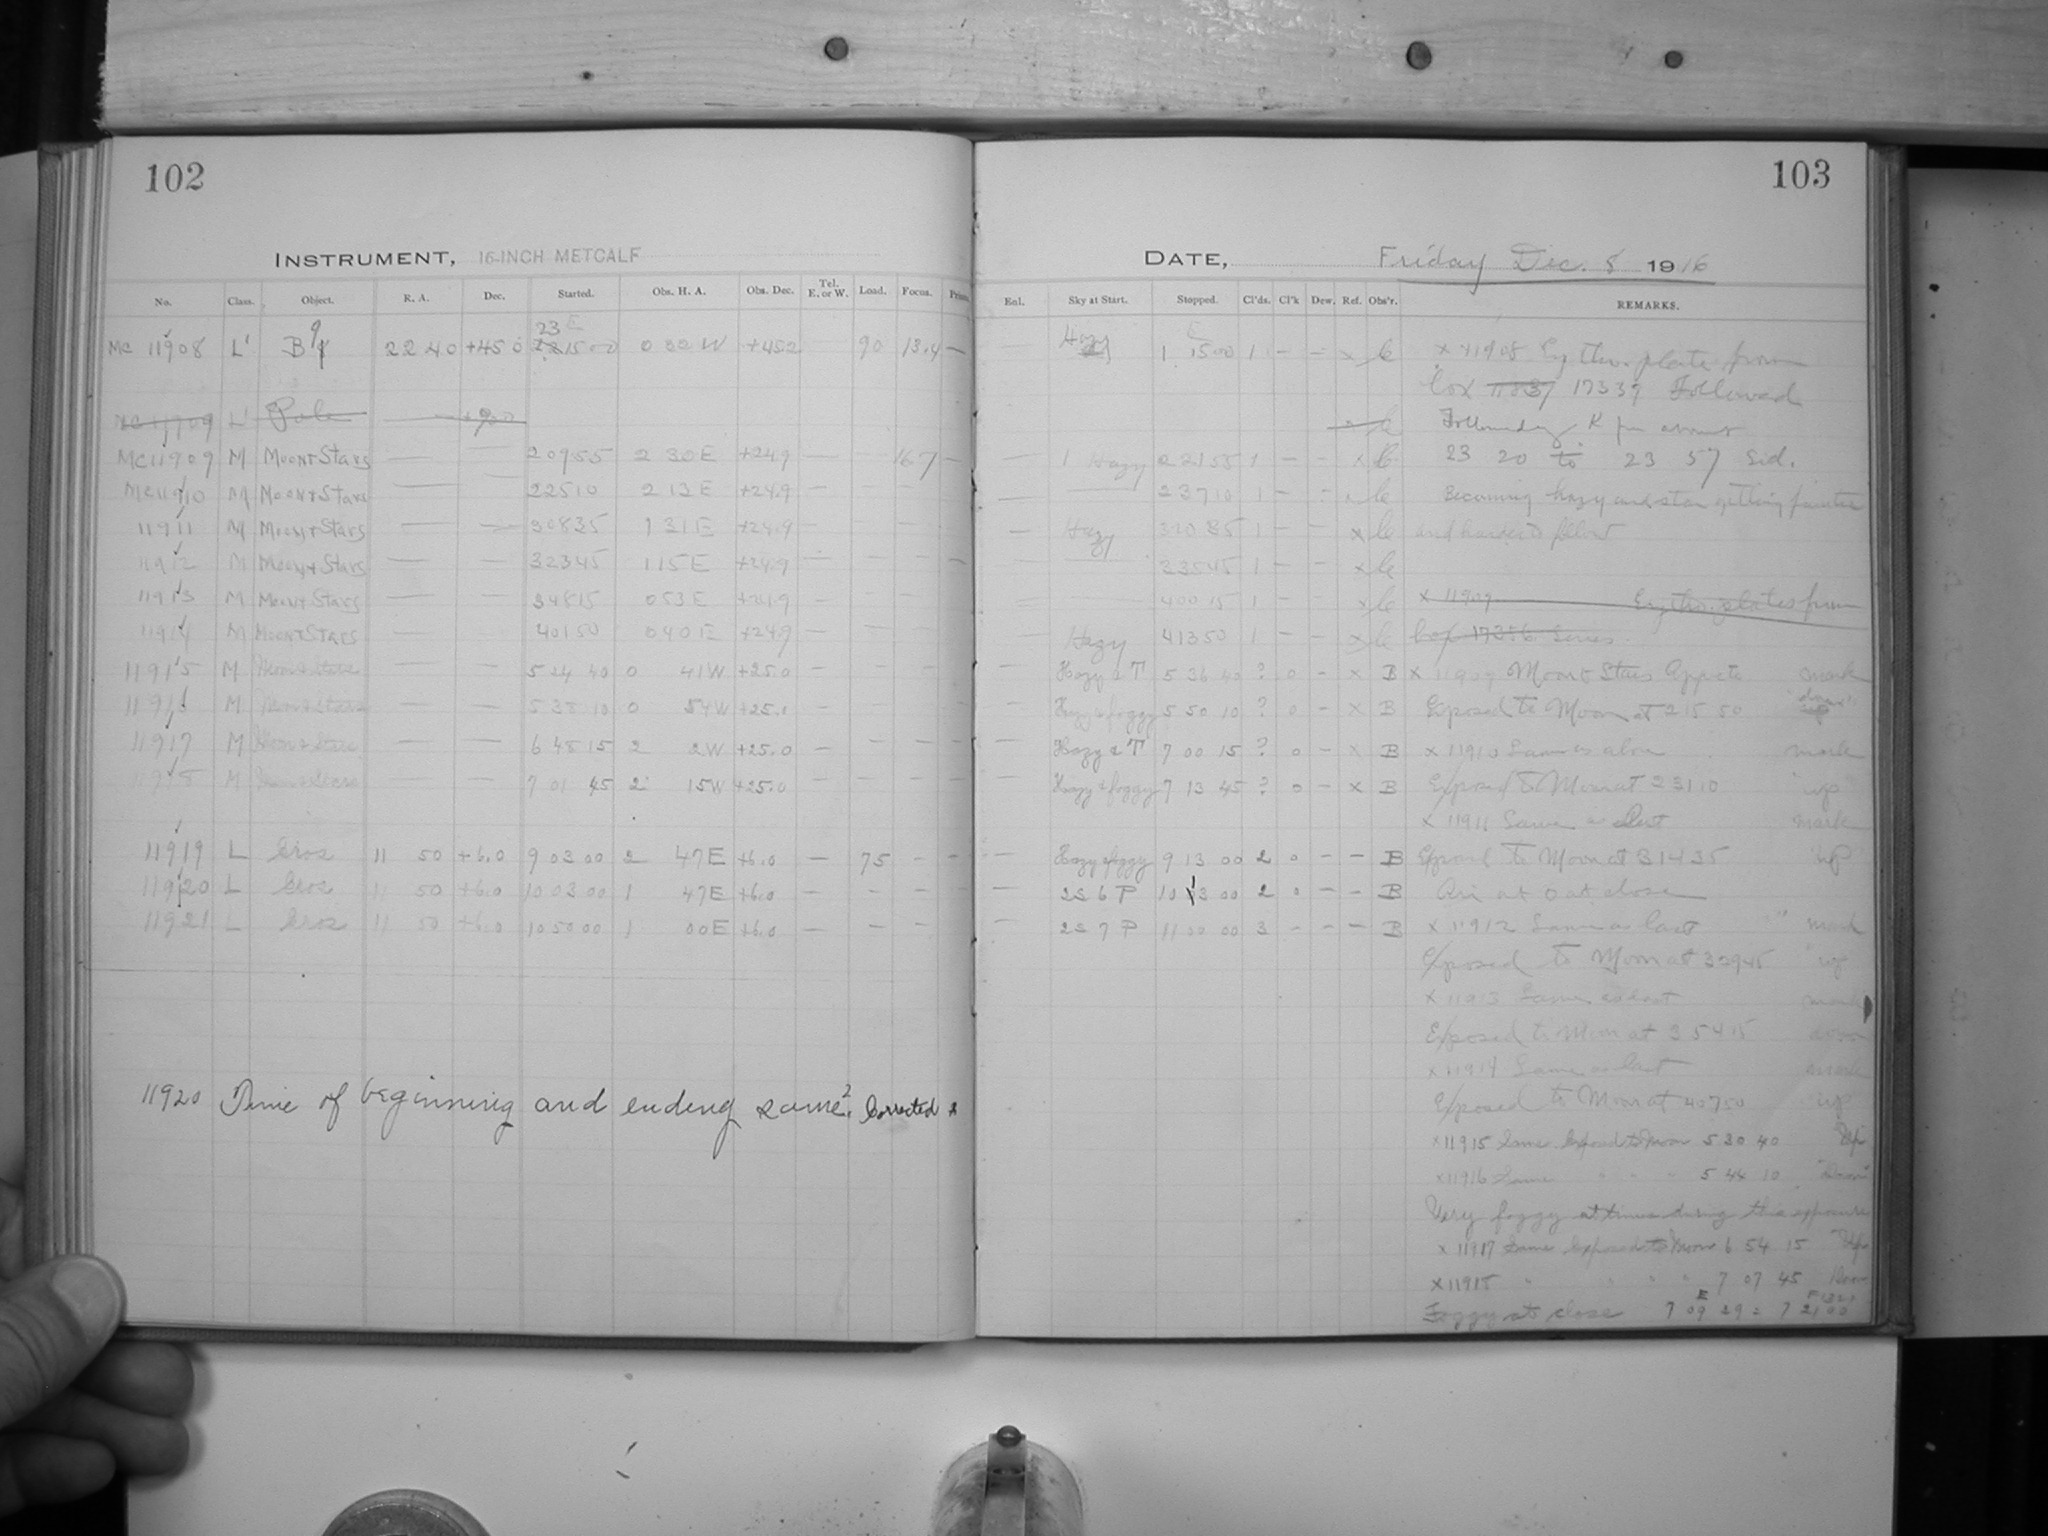 102
INSTRUMENT, 16-INCH METCALF
No. Class. Object. R. A. Dec. Started. Obs. H. A. Obs. Dec. Tel. E. or W. Load. Focus.
MC 11908 L' B 22 40 +45 0 23 15 00 0 32 W +45.2 90 13.4 —
L' Pole — +90.0
MC 11909 M MOON+STARS — — 2 09 55 2 30 E +24.9 — — 16.7 —
MC 11910 M MOON+STARS — — 2 25 10 2 13 E +24.9 — — — —
11911 M MOON+STARS — — 3 08 35 1 31 E +24.9 — — — —
11912 M MOON+STARS — — 3 23 45 1 15 E +24.9 — — — —
11913 M MOON+STARS — — 3 48 15 0 53 E +24.9 — — — —
11914 M MOON+STARS — — 4 01 50 0 40 E +24.9 — — — —
11915 M Moon & Stars — — 5 24 40 0 41 W +25.0 — — — —
11916 M Moon & Stars — — 5 38 10 0 54 W +25.0 — — — —
11917 M Moon & Stars — — 6 48 15 2 2 W +25.0 — — — —
11918 M Moon & Stars — — 7 01 45 2 15 W +25.0 — — — —
11919 L Eros 11 50 +6.0 9 03 00 2 47 E +6.0 — 75 — —
11920 L Eros 11 50 +6.0 10 03 00 1 47 E +6.0 — — — —
11921 L Eros 11 50 +6.0 10 50 00 1 00 E +6.0 — — — —
11920 Time of beginning and ending same?. Corrected
103
DATE, Friday Dec. 8 1916
Sky at Start. Stopped. Cl'ds. Cl'k Dew. Ref. Obs'r. REMARKS.
Hazy 1 15 00 1 — — x C x 11908 Erythro. plate from
box 17337 17339 Followed
Following
— 1 Hazy 2 21 55 1 — — x C 23 20 to 23 57 Sid.
— — 2 37 10 1 — — x C Becoming hazy and star getting fainter
— Hazy 1 — — x C and harder to follow
— — 3 35 45 1 — — x C
— — 4 00 15 1 — — x C x 11909 Erythro. plates from
— Hazy 4 13 50 1 — — x C box 17356 Series
— Hazy & T 5 36 40 ? 0 — x B x 11909 Moon & Stars mark
— Hazy & foggy 5 50 10 ? 0 — x B Exposed to Moon at 2 15 50 "down"
— Hazy & T 7 00 15 ? 0 — x B x 11910 Same as above mark
— Hazy & foggy 7 13 45 ? 0 — x B Exposed to Moon at 2 31 10 "up"
x 11911 Same as last mark
— Hazy & foggy 9 13 00 2 0 — — B Exposed to Moon at 3 14 35 "up"
— 2S 6 P 10 13 00 2 0 — — B at 0 at close
— 2S 7 P 11 00 00 3 — — — B x 11912 Same as last mark
Exposed to Moon at 3 29 45 "up"
x 11913 Same as last mark
Exposed to Moon at 3 54 15 down
x 11914 Same as last mark
Exposed to Moon at 4 07 50 up
x 11915 Same Exposed to Moon 5 30 40 "Up"
x 11916 Same " " " 5 44 10 "Down"
Very foggy at times during the exposure
x 11917 Same Exposed to Moon 6 54 15 "Up"
x 11915 " " " " 7 07 45 Down
Foggy at close E 7 09 29 = 7 21 00